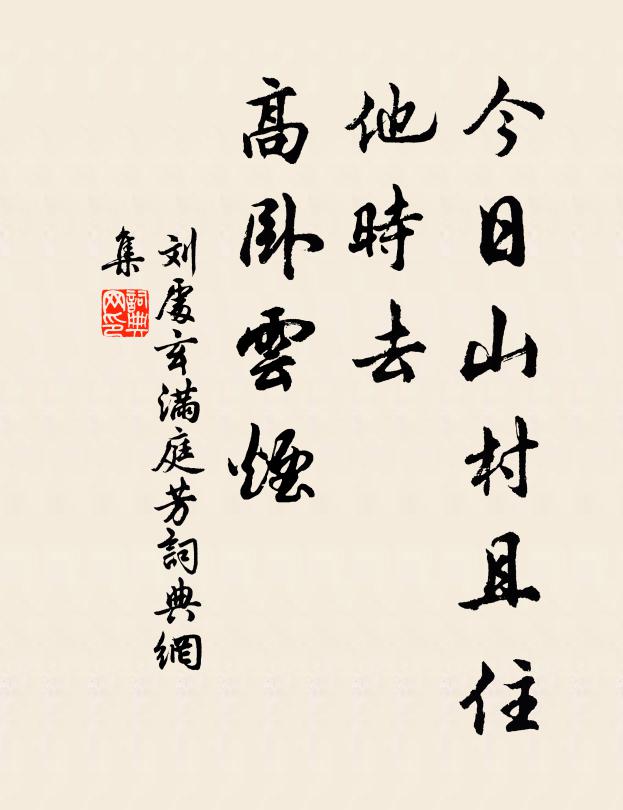 今日山村且住
他時去
高臥雲煙
刘處玄滿庭芳詞典網
集
詞典
网印